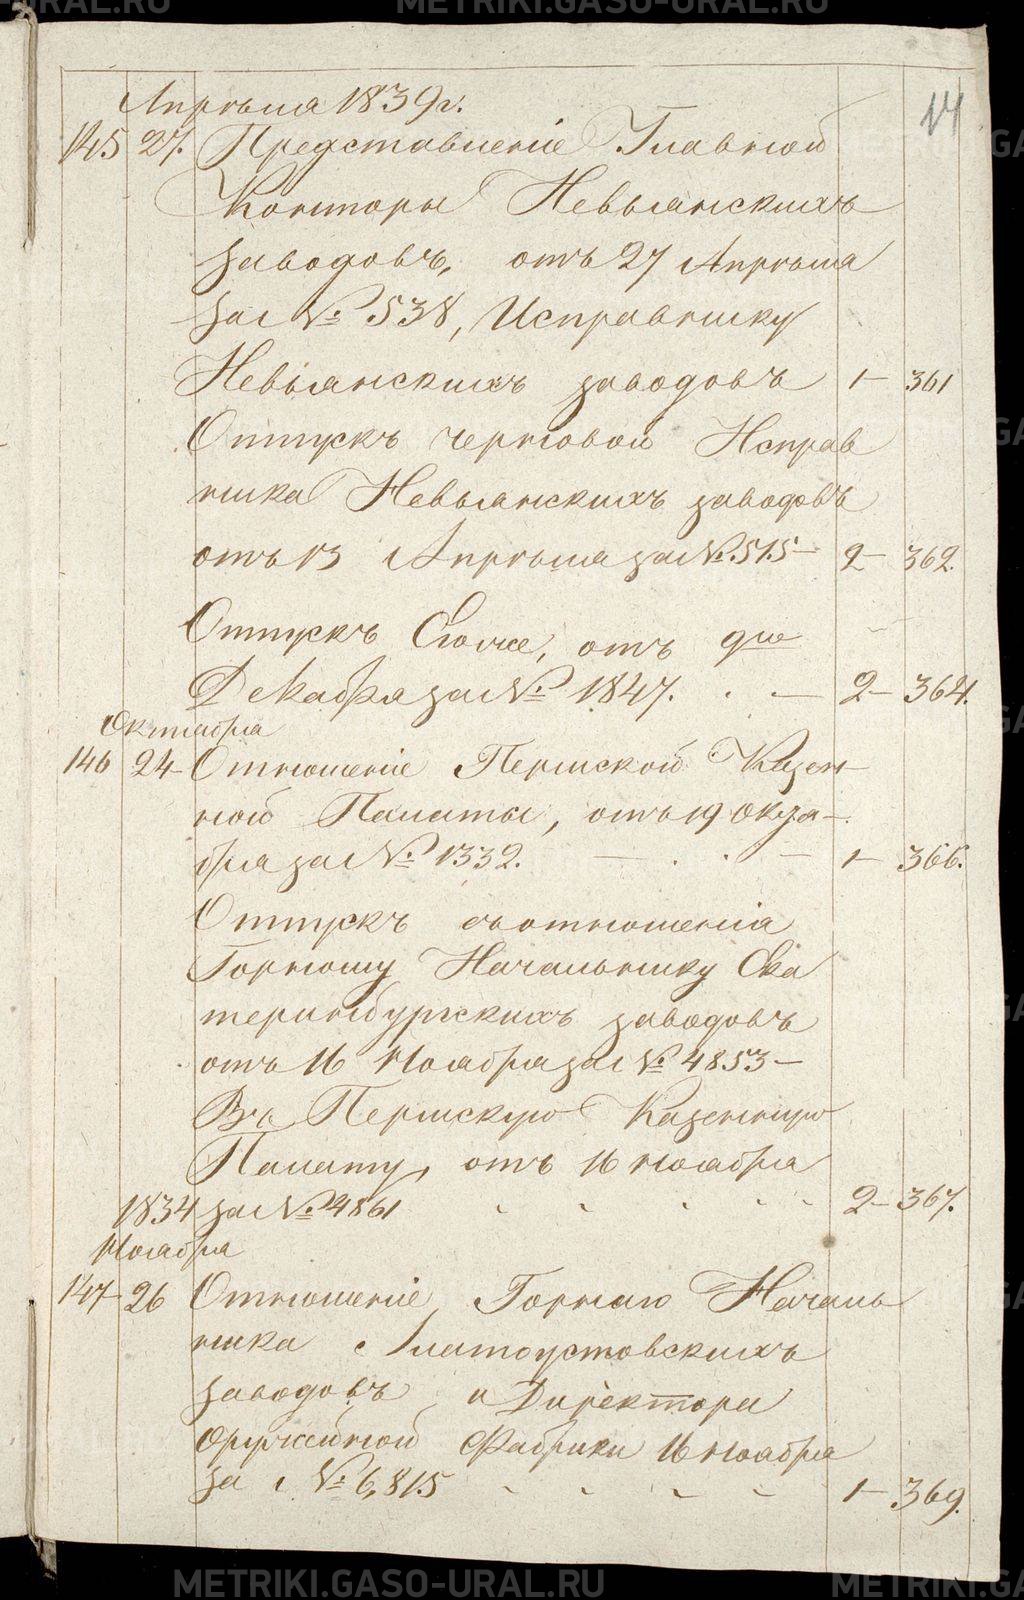 METRIKI.GASO-URAL.RU
14
Апрѣля 1839 г.
145 27. Представленіе Главной
Конторы Невьянскихъ
заводовъ, отъ 27 Апрѣля
за № 538, Исправнику
Невьянскихъ заводовъ 1 – 361
Отпускъ черновой Исправ
ника Невьянскихъ заводовъ
отъ 13 Апрѣля за № 515 – 2 – 362.
Отпускъ отъ
Декабря за № 1847. . – 2 – 364.
Октября
146 24 – Отношеніе Пермской Казен
ной Палаты, отъ 19 Октя-
бря за № 1332. – . . – 1 – 366.
Отпускъ съ отношенія
Горному Начальнику Ека
теринбургскихъ заводовъ
отъ 16 Ноября за № 4853 –
Въ Пермскую Казенную
Палату, отъ 16 Ноября
1834 за № 4861 2 – 367.
Ноября
147 – 26 Отношеніе Горнаго Началь
ника Златоустовскихъ
заводовъ и Директора
Оружейной Фабрики 16 Ноября
за № 6,815 1 – 369.
METRIKI.GASO-URAL.RU